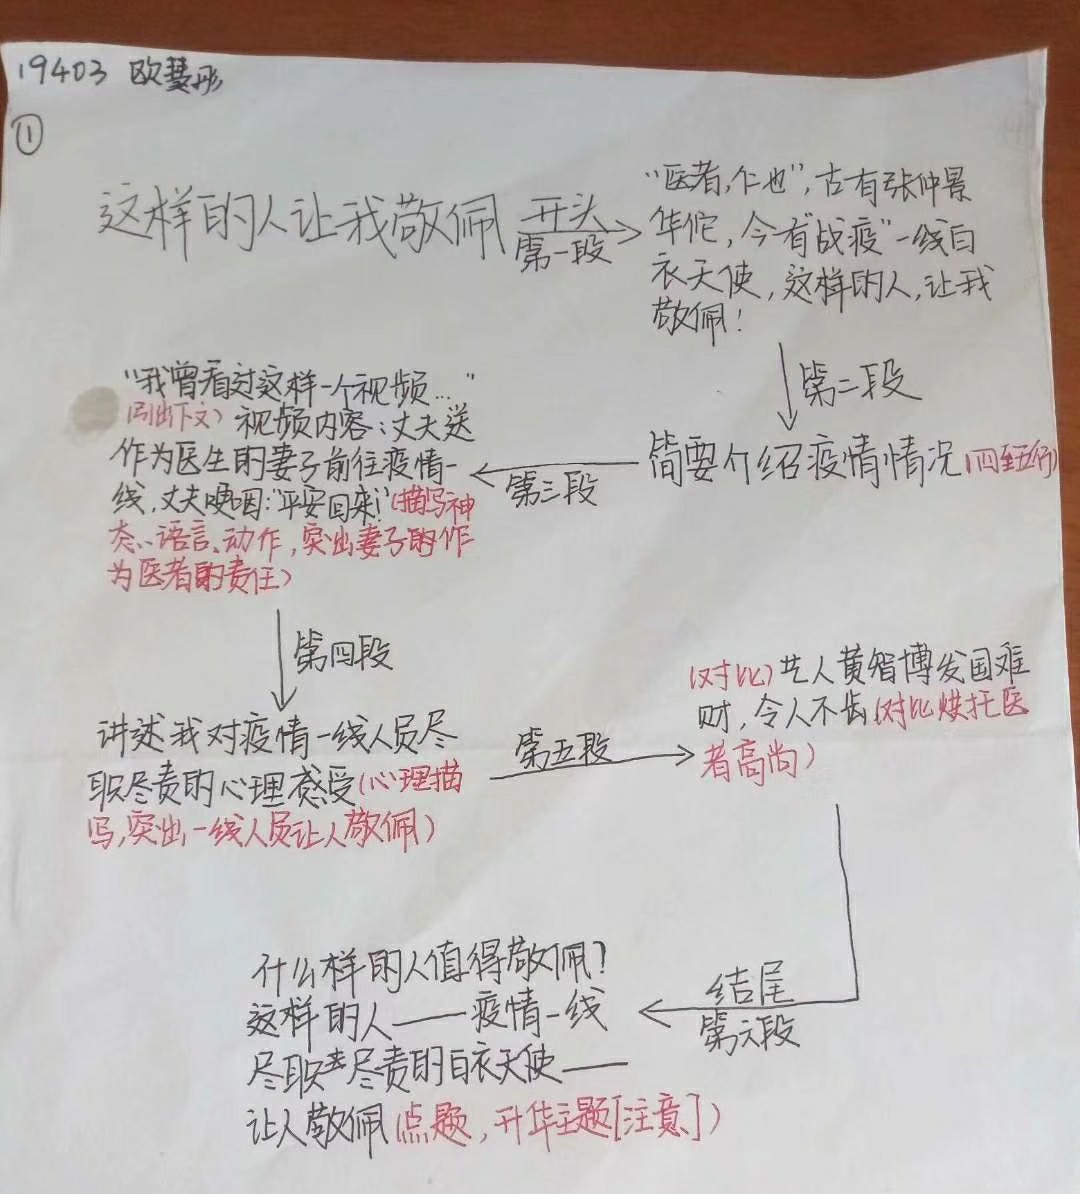 19403 欧慧彤
①
这样的人让我敬佩
开头
第一段
"医者,仁也",古有张仲景
华佗,今有"战疫"一线白
衣天使,这样的人,让我
敬佩!
第二段
简要介绍疫情情况(四至五行)
第三段
"我曾看过这样一个视频..."
(引出下文) 视频内容:丈夫送
作为医生的妻子前往疫情一
线,丈夫哽咽:"平安回来!"(描写神
态、语言、动作,突出妻子的作
为医者的责任)
第四段
讲述我对疫情一线人员尽
职尽责的心理感受(心理描
写,突出一线人员让人敬佩)
第五段
(对比)艺人黄智博发国难
财,令人不齿(对比烘托医
者高尚)
结尾
第六段
什么样的人值得敬佩?
这样的人——疫情一线
尽职尽责的白衣天使——
让人敬佩(点题,升华主题[注意])